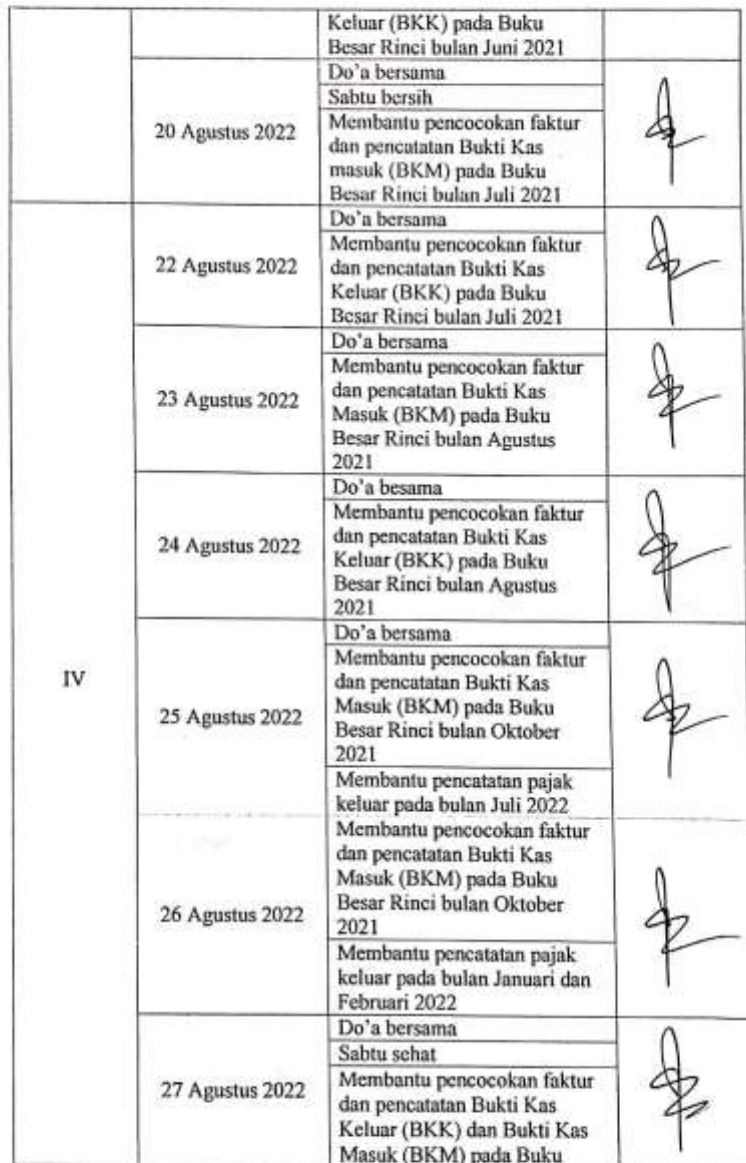 Keluar (BKK) pada Buku
Besar Rinci bulan Juni 2021
20 Agustus 2022
Do'a bersama
Sabtu bersih
Membantu pencocokan faktur
dan pencatatan Bukti Kas
masuk (BKM) pada Buku
Besar Rinci bulan Juli 2021
IV
22 Agustus 2022
Do'a bersama
Membantu pencocokan faktur
dan pencatatan Bukti Kas
Keluar (BKK) pada Buku
Besar Rinci bulan Juli 2021
23 Agustus 2022
Do'a bersama
Membantu pencocokan faktur
dan pencatatan Bukti Kas
Masuk (BKM) pada Buku
Besar Rinci bulan Agustus
2021
24 Agustus 2022
Do'a besama
Membantu pencocokan faktur
dan pencatatan Bukti Kas
Keluar (BKK) pada Buku
Besar Rinci bulan Agustus
2021
25 Agustus 2022
Do'a bersama
Membantu pencocokan faktur
dan pencatatan Bukti Kas
Masuk (BKM) pada Buku
Besar Rinci bulan Oktober
2021
Membantu pencatatan pajak
keluar pada bulan Juli 2022
26 Agustus 2022
Membantu pencocokan faktur
dan pencatatan Bukti Kas
Masuk (BKM) pada Buku
Besar Rinci bulan Oktober
2021
Membantu pencatatan pajak
keluar pada bulan Januari dan
Februari 2022
27 Agustus 2022
Do'a bersama
Sabtu sehat
Membantu pencocokan faktur
dan pencatatan Bukti Kas
Keluar (BKK) dan Bukti Kas
Masuk (BKM) pada Buku